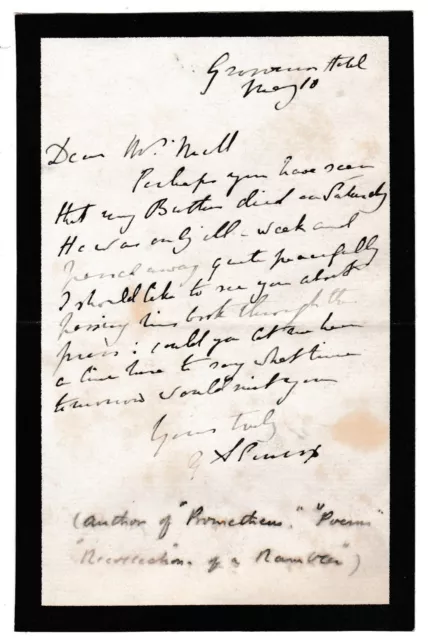 Grosvenor Hotel
May 10
Dear Mr
Perhaps you have seen
that my Brother died on Saturday
He was only ill a week and
passed away quite peacefully
I should like to see you about
passing his book through the
press: could you let me have
a line here to say what time
tomorrow would suit you
Yours truly
(author of "Prometheus," "Poems"
"Recollections of a Rambler")